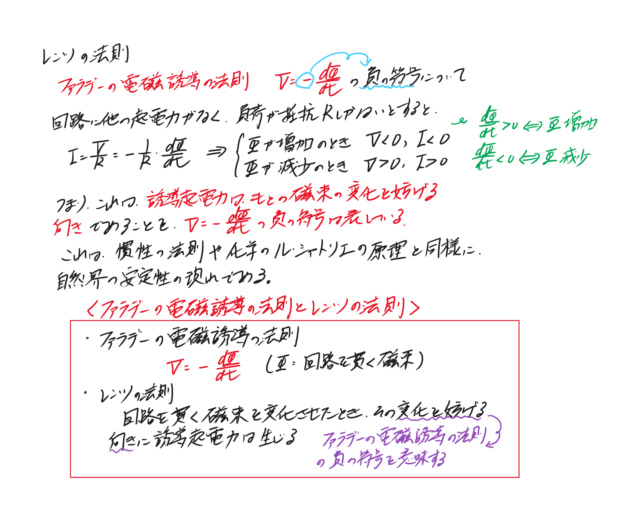 レンツの法則
ファラデーの電磁誘導の法則 V = -dΦ/dt の負の符号について
回路に他の起電力がなく、負荷が抵抗Rしかないとすると、
I = V/R = -1/R・dΦ/dt ⇒ { Φが増加のとき V<0, I<0
Φが減少のとき V>0, I>0
dΦ/dt>0 ⇔ Φ増加
dΦ/dt<0 ⇔ Φ減少
つまり、これは、誘導起電力は、もとの磁束の変化を妨げる
向きであることを、V = -dΦ/dt の負の符号は表している。
これは、慣性の法則や化学のル・シャトリエの原理と同様に、
自然界の安定性の現れである。
<ファラデーの電磁誘導の法則とレンツの法則>
・ファラデーの電磁誘導の法則
V = -dΦ/dt (Φ: 回路を貫く磁束)
・レンツの法則
回路を貫く磁束を変化させたとき、その変化を妨げる
向きに誘導起電力は生じる
ファラデーの電磁誘導の法則
の負の符号を意味する